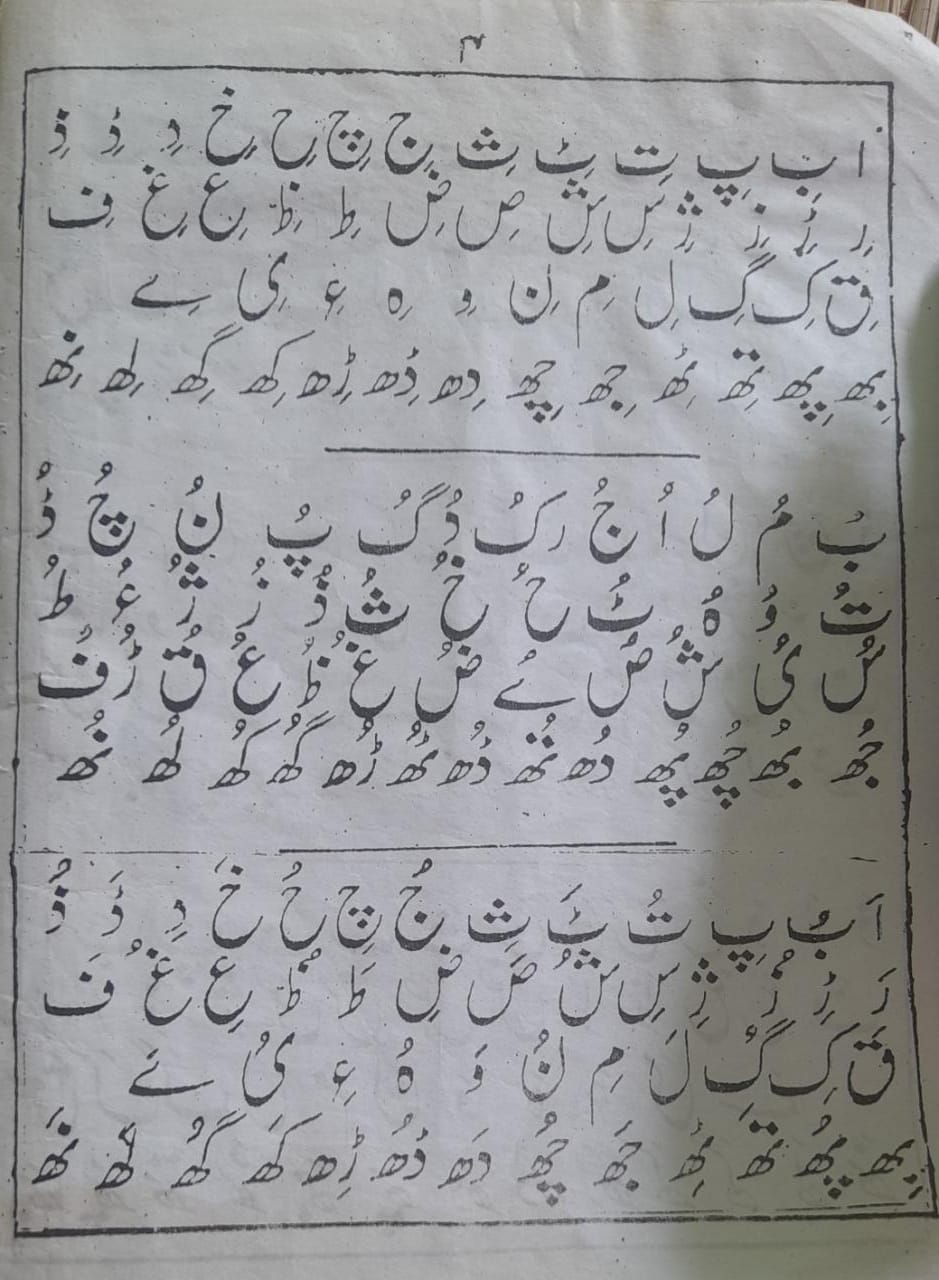 ۳
اِ بِ پِ تِ ٹِ ثِ جِ چِ حِ خِ دِ ڈِ ذِ
رِ ڑِ زِ ژِ سِ شِ صِ ضِ طِ ظِ عِ غِ فِ
قِ کِ گِ لِ مِ نِ وِ ہِ ءِ یِ ےِ
بِھ پِھ تِھ ٹِھ جِھ چِھ دِھ ڈِھ ڑِھ کِھ گِھ لِھ نِھ
بُ مُ لُ اُ جُ رکُ دُ گُ پُ نُ چُ ڈُ
تُ وُ ہُ ٹُ حُ خُ ثُ ذُ زُ ژُ ءُ طُ
سُ یُ شُ صُ ےُ ضُ غُ ظُ عُ قُ ڑُ فُ
جُھ بُھ چُھ پُھ دُھ تُھ ڈُھ ٹُھ ڑُھ گُھ کُھ لُھ نُھ
اَ بُ پِ تُ ٹَ ثِ جُ چِ حُ خَ دِ ڈَ ذُ
رَ ڑِ زُ ژِ سِ شُ صَ ضِ طَ ظُ عِ غُ فَ
قَ کِ گُ لَ مِ نُ وَ ہُ ءِ یُ ےَ
بِھ پُھ تَھ ٹِھ جَھ چُھ دَھ ڈُھ ڑِھ کَھ گُھ لَھ نَھ